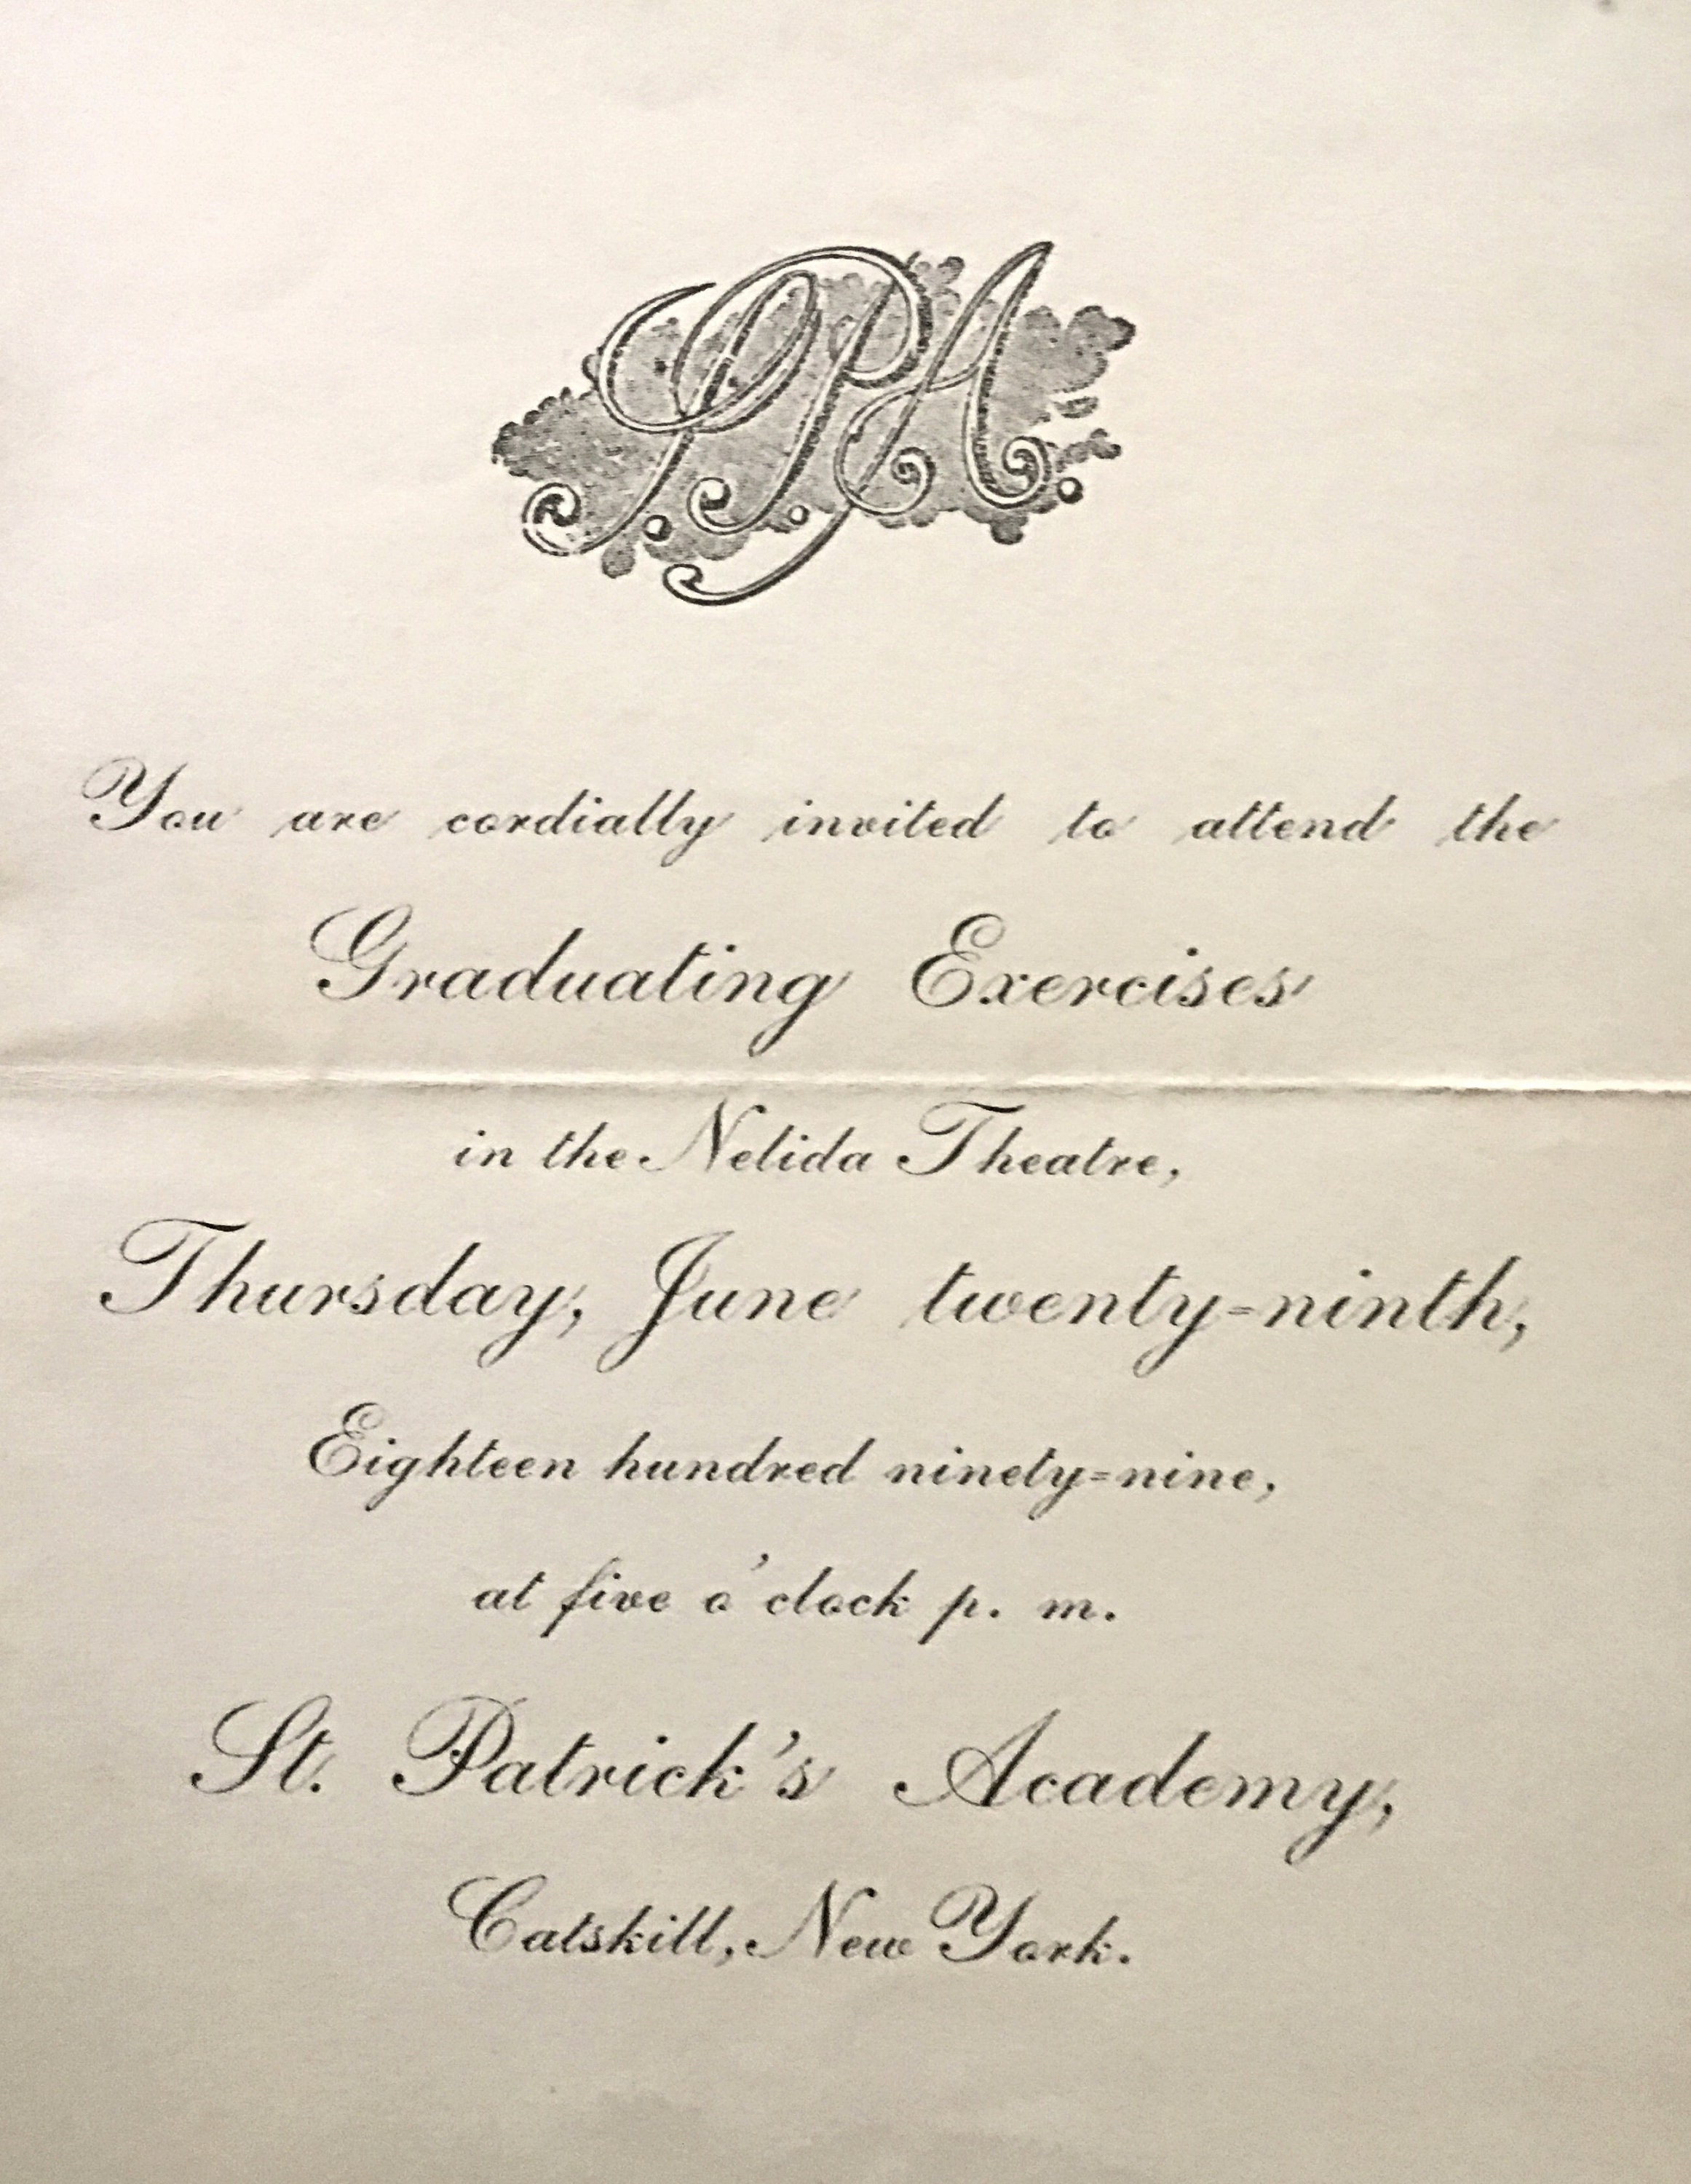 S.P.A.
You are cordially invited to attend the
Graduating Exercises
in the Nelida Theatre,
Thursday, June twenty=ninth,
Eighteen hundred ninety=nine,
at five o'clock p. m.
St. Patrick's Academy,
Catskill, New York.